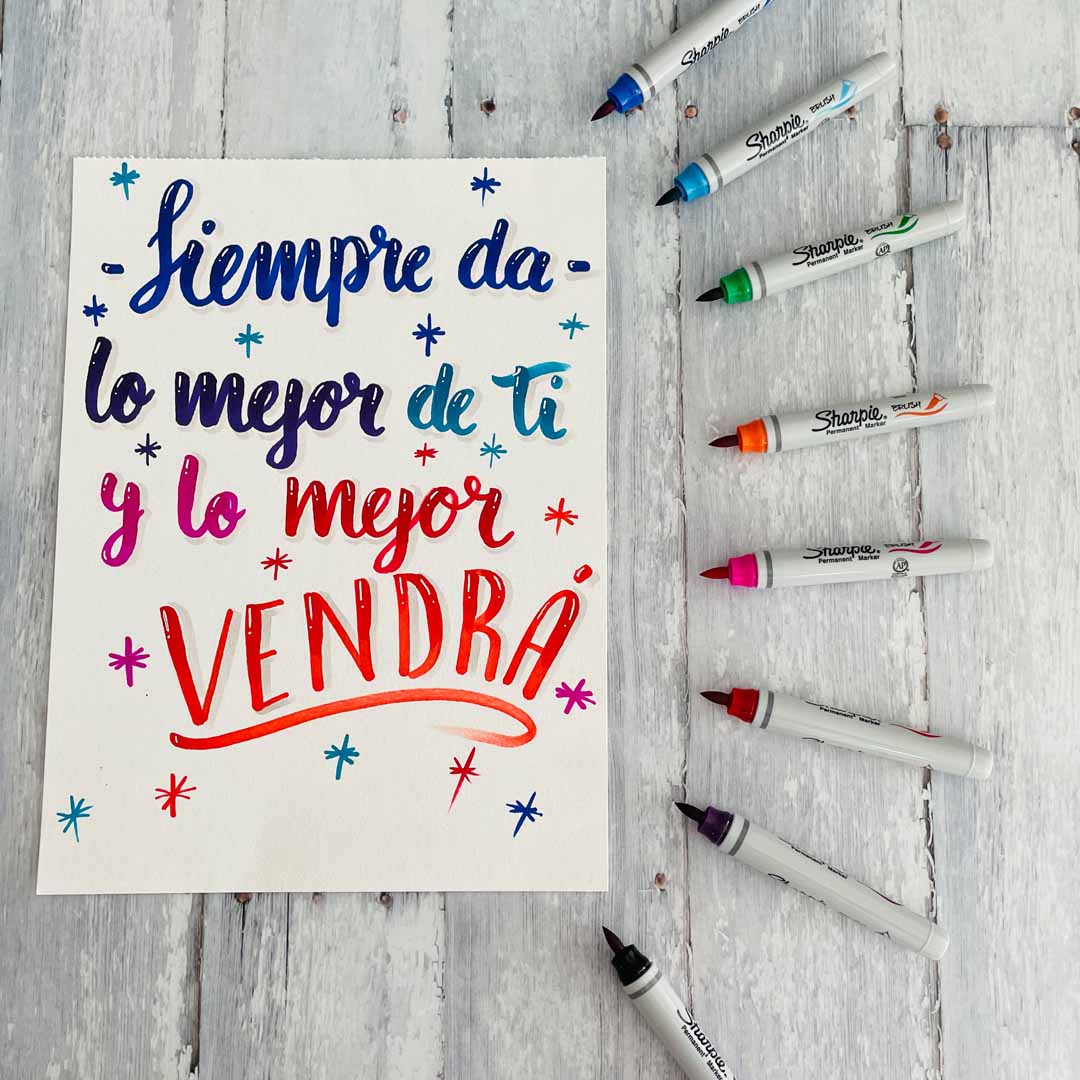 - Siempre da -
lo mejor de ti
y lo mejor
VENDRÁ
Sharpie BRUSH
Sharpie® BRUSH
Permanent Marker
Sharpie® BRUSH
Permanent Marker AP
Sharpie® BRUSH
Permanent Marker
Sharpie® BRUSH
Permanent Marker AP
Permanent Marker
Permanent Marker
Sharpie
Sharpie
Permanent Marker